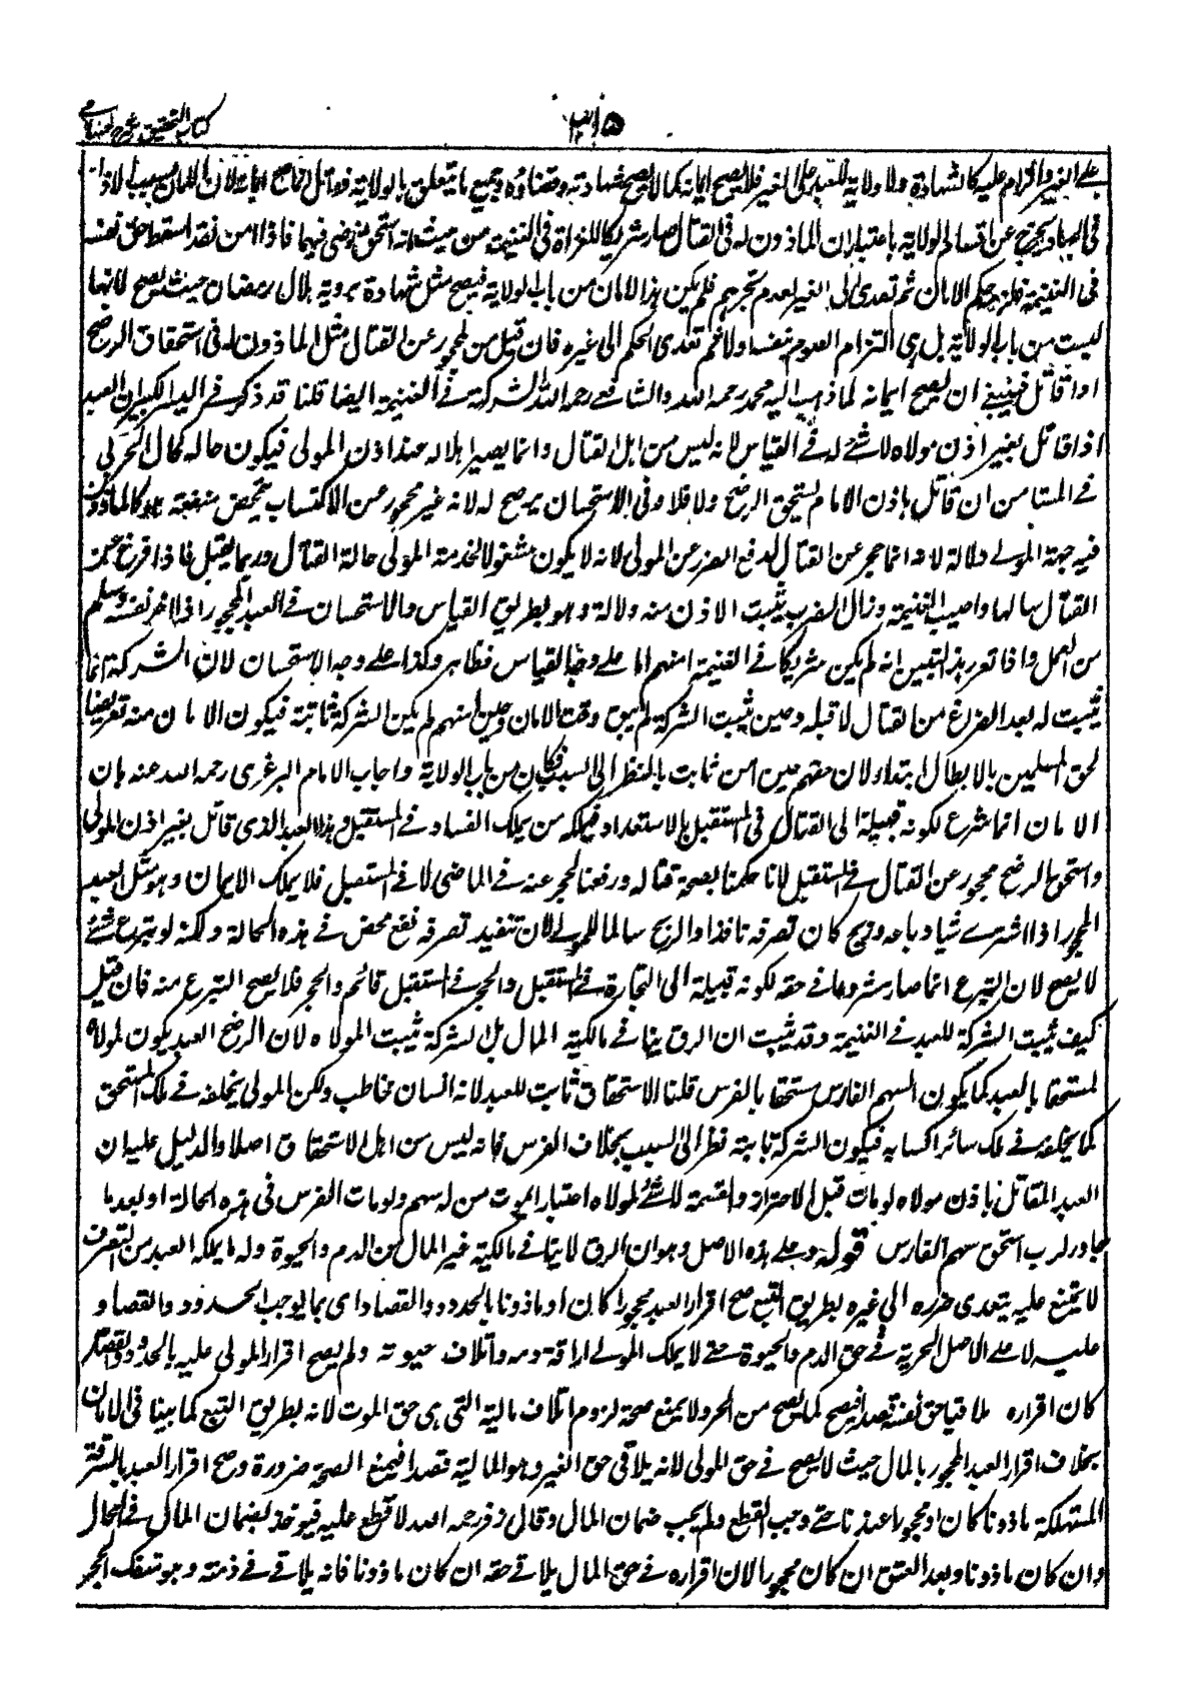 كتاب التحقيق شرح الحسامي
على الغير والزام عليه كالشهادة ولا ولاية للعبد على الغير فلا يصح ايمانه كما لا يصح شهادته وقضاؤه وجميع ما يتعلق بالولاية
في الجهاد يخرج عن اقسام الولاية باعتبار ان الماذون له في القتال صار شريكا للغزاة في الغنيمة من حيث انه استحق رضخا فيها فاذا امن فقد اسقط حق نفسه
في الغنيمة فلزم حكم الامان ثم تعدى الى الغير لعدم تجزيه فلم يكن هذا الامان من باب الولاية فيصح مثل شهادة برويه هلال رمضان حيث يصح لانها
ليست من باب الولاية بل هي التزام الصوم بنفسه اولا ثم تعدى الحكم الى غيره فان قيل من المحجور عن القتال مثل الماذون له في استحقاق الرضخ
اذا قاتل فينبغي ان يصح ايمانه كما ذهب اليه محمد رحمه الله والشافعي رحمه الله للشركة في الغنيمة ايضا قلنا قد ذكر في السير الكبير ان العبد
اذا قاتل بغير اذن مولاه لا شئ له في القياس لانه ليس من اهل القتال وانما يصير اهلا له عند اذن المولى فيكون حاله كحال الحربي
في المستامن ان قاتل باذن الامام يستحق الرضخ والا فلا وفي الاستحسان يرضخ له لانه غير محجور عن الاكتساب بما يتمحض منفعة وهو كالماذون
فيه جهة المولى دلالة لانه انما حجر عن القتال لدفع الضرر عن المولى لانه لا يكون مشغولا لخدمة المولى حالة القتال وربما يقتل فاذا فرغ عن
القتال سالما واصيب الغنيمة وزال الضرر يثبت الاذن منه دلالة وهو بطريق القياس والاستحسان في العبد المحجور اذا اجر نفسه وسلم
من العمل واذا تقرر هذا تبين انه لم يكن شريكا في الغنيمة امنهم اما على وجه القياس فظاهر وكذا على وجه الاستحسان لان الشركة انما
تثبت له بعد الفراغ من القتال لا قبله وحين ثبت الشركة لم يبق وقت الامان وحين امنهم لم يكن الشركة ثابتة فيكون الامان منه تعريضا
لحق المسلمين بالابطال ابتداء لان حقهم حين امن ثابت بالنظر الى السبب فكان من باب الولاية واجاب الامام البرغري رحمه الله عنه بان
الامان انما شرع لكونه قبيلة الى القتال في المستقبل بالاستعداد فيملكه من يملك القتال في المستقبل وهذا العبد الذي قاتل بغير اذن المولى
واستحق الرضخ محجور عن القتال في المستقبل لانا حكمنا بصحة قتاله ورفعنا الحجر عنه في الماضي لا في المستقبل فلا يملك الايمان وهو مثل العبد
المحجور اذا اشترى شيئا وباعه وربح كان تصرفه نافذا والربح سالما للمولى لان تنفيذ تصرفه نفع محض في هذه الحالة ولكنه لو تبرع بشئ
لا يصح لان التبرع انما صار مشروعا في حقه لكونه قبيلة الى التجارة في المستقبل والحجر في المستقبل قائم والحجر فلا يصح التبرع منه فان قيل
كيف يثبت الشركة للعبد في الغنيمة وقد ثبت ان الرق ينافي مالكية المال بل الشركة تثبت لمولاه لان الرضخ العبد يكون لمولاه
مستحقا بالعبد كما يكون السهم الفارس مستحقا بالفرس قلنا الاستحقاق ثابت للعبد لانه انسان مخاطب ولكن المولى يخلفه في ملك المستحق
كما يخلفه في ملك سائر اكسابه فيكون الشركة ثابتة نظرا الى السبب بخلاف الفرس فانه ليس من اهل الاستحقاق اصلا والدليل عليه ان
العبد المقاتل باذن مولاه لو مات قبل الاحراز والقسمة لا شئ لمولاه اعتبارا بموت من له سهم ولو مات الفرس في هذه الحالة او بعد ما
جاوز الدرب استحق سهم الفارس قوله وعلى هذا الاصل وهو ان الرق لا ينافي مالكية غير المال من الدم والحيوة وله ما يملكه العبد من التصرف
لا يمتنع عليه بتعدى ضرره الى غيره بطريق التبع صح اقرار العبد محجورا كان او ماذونا بالحدود والقصاص اى بما يوجب الحدود والقصاص
عليه لا على الاصل الحرية في حق الدم والحيوة حتى لا يملك المولى اراقة دمه واتلاف حيوته ولم يصح اقرار المولى عليه بالحدود والقصاص
كان اقراره ملاقيا حق نفسه قصدا فيصح كما يصح من الحر ولا يمنع صحة لزوم اتلاف مالية التي هي حق المولى لانه بطريق التبع كما بينا في الامان
بخلاف اقرار العبد المحجور بالمال حيث لا يصح في حق المولى لانه يلاقي حق الغير وهو المالية قصدا فيمنع الصحة ضرورة وصح اقرار العبد بالسرقة
المستهلكة ماذونا كان او محجورا عندنا حتى وجب القطع ولم يجب ضمان المال وقال زفر رحمه الله لا قطع عليه فيؤخذ بضمان المال في الحال
وان كان ماذونا وبعد العتق ان كان محجورا لان اقراره في حق المال يلاقي حقه ان كان ماذونا فانه يلاقي في ذمته وهو منفك الحجر